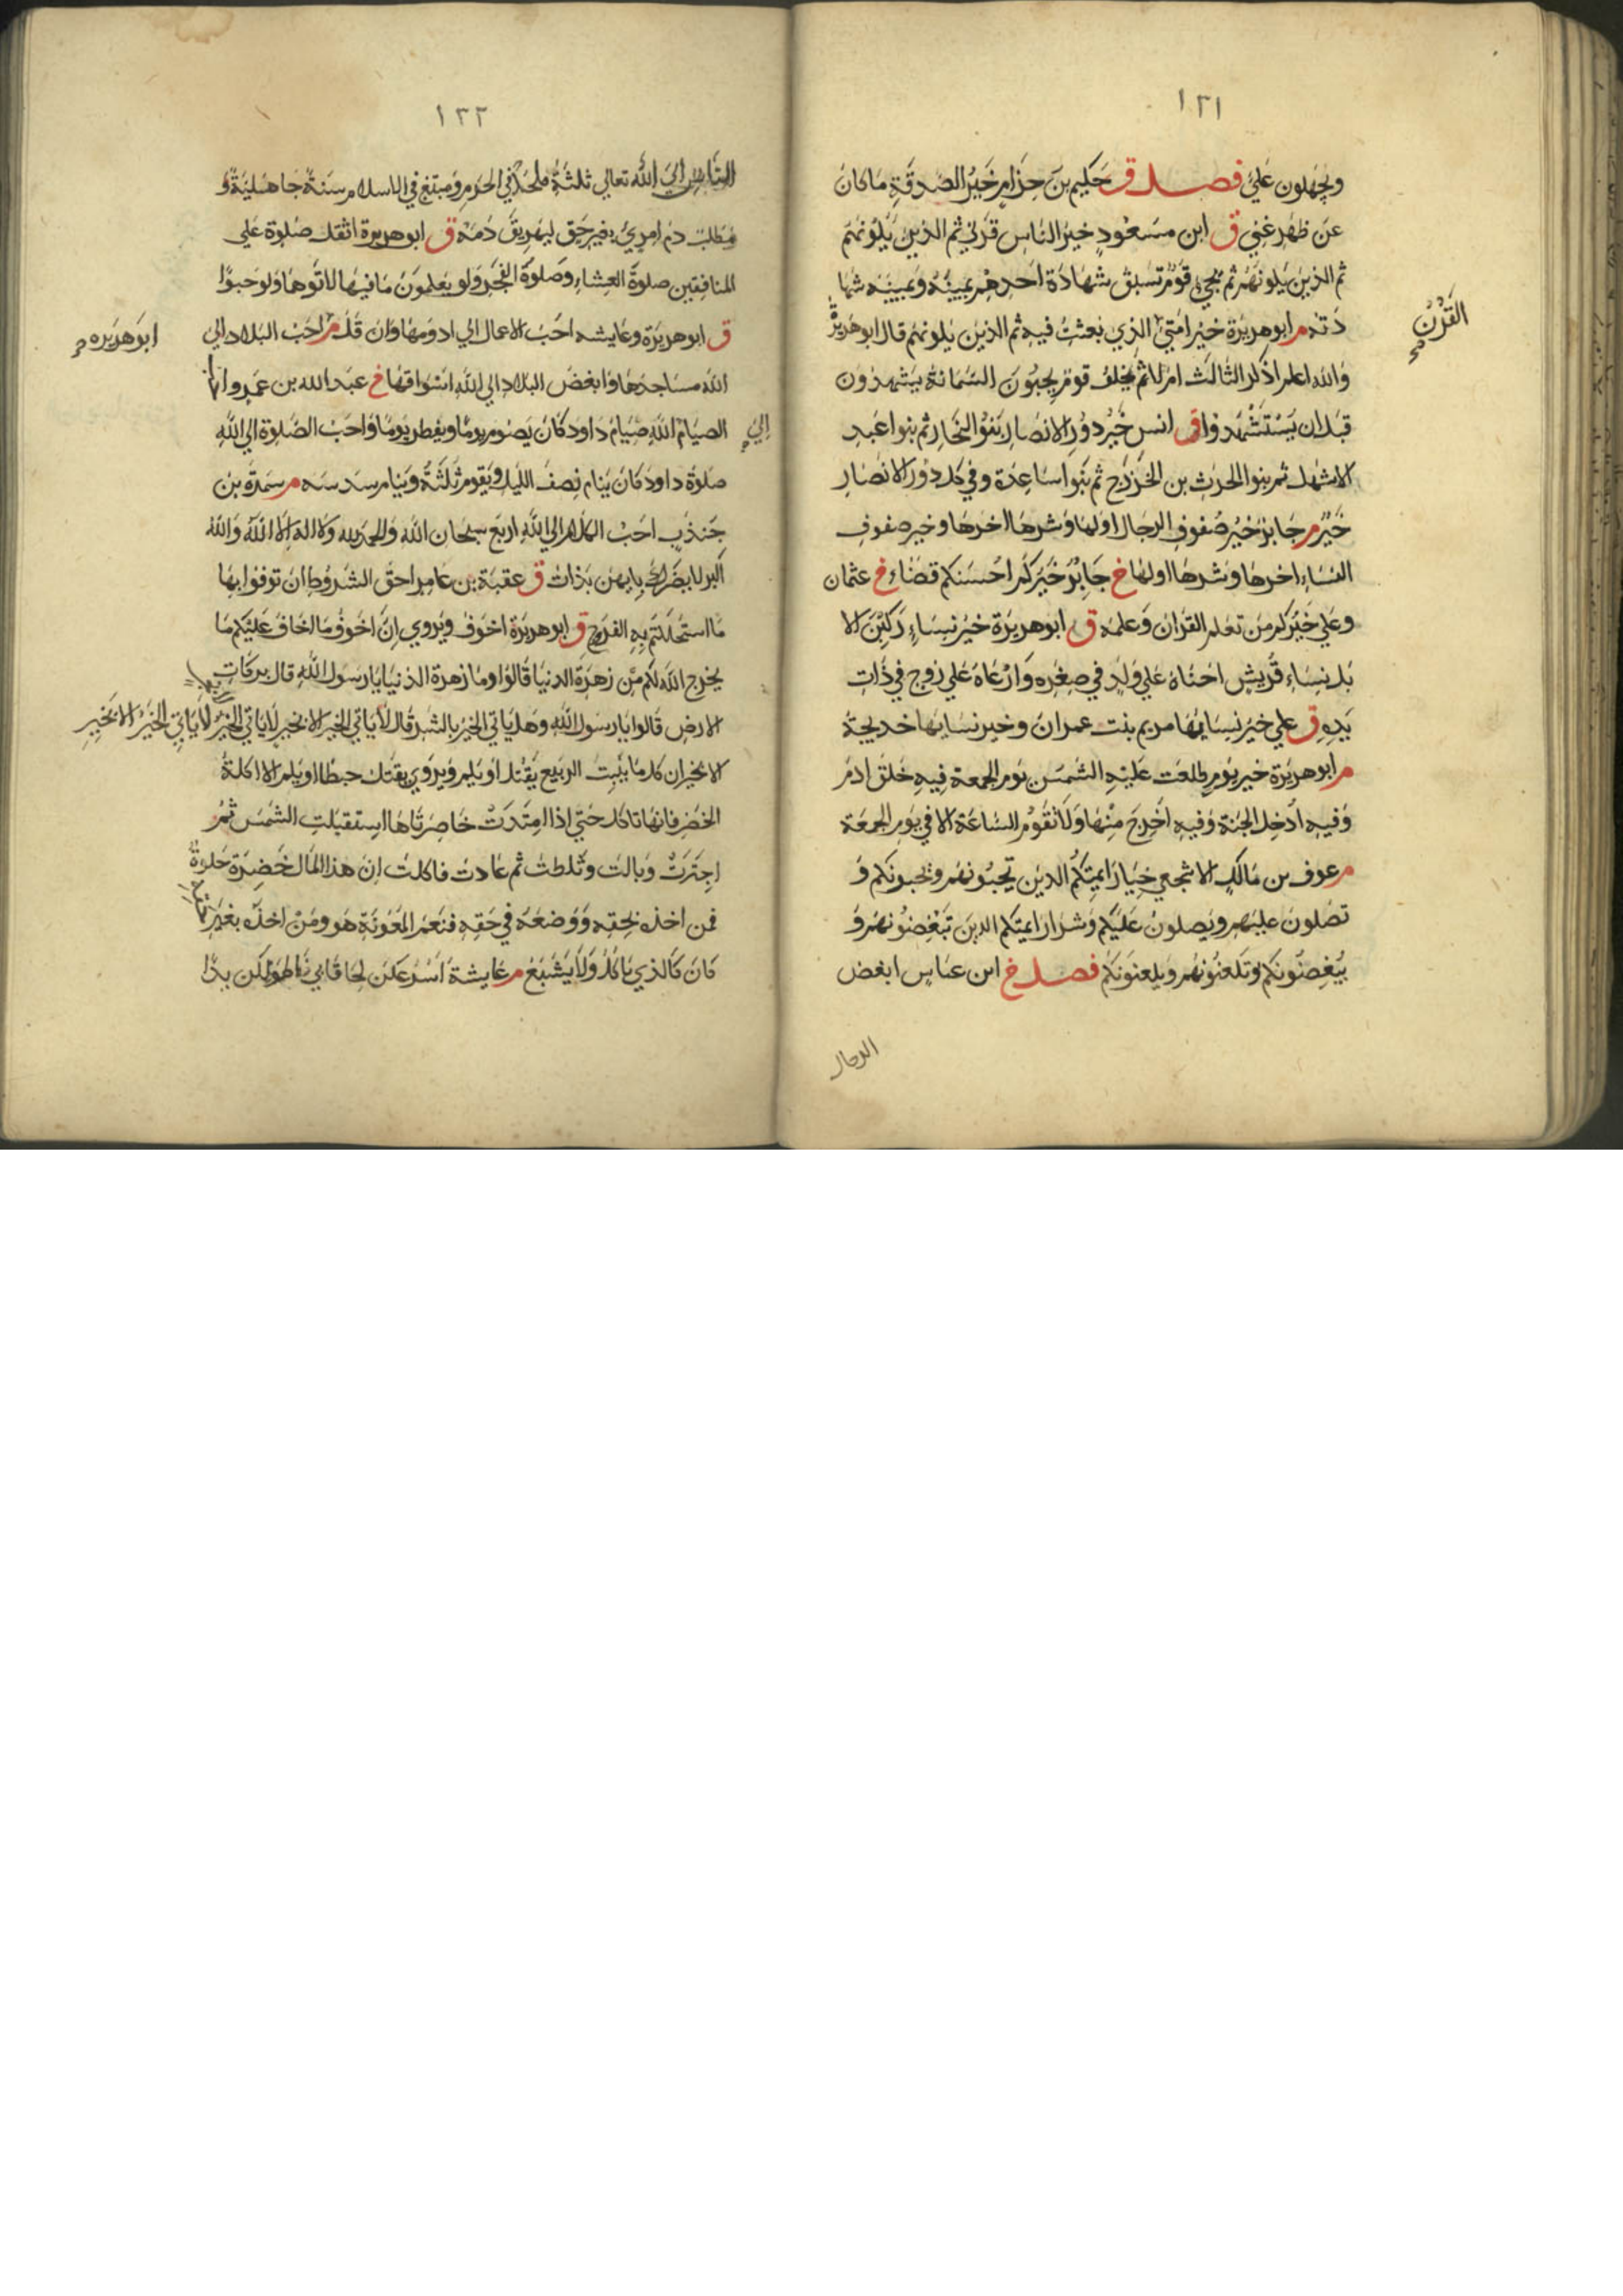 ١٣١
ويجهلون علي فصل ق حكيم بن حزام خير الصدقة ما كان
عن ظهر غني ق ابن مسعود خير الناس قرني ثم الذين يلونهم
ثم الذين يلونهم ثم يجيء قوم تسبق شهادة احدهم يمينه ويمينه شها
دته م ابو هريرة خير امتي الذي بعثت فيه ثم الذين يلونهم قال ابو هريرة
القرن صح
والله اعلم اذكر الثالث ام لا ثم يخلف قوم يحبون السمانة يشهدون
قبل ان يستشهدوا ق انس خير دور الانصار بنوا النجار ثم بنوا عبد
الاشهل ثم بنوا الحرث بن الخزرج ثم بنوا ساعدة وفي كل دور الانصار
خير م جابر خير صفوف الرجال اولها وشرها اخرها وخير صفوف
النساء اخرها وشرها اولها خ جابر خيركم احسنكم قضاء خ عثمان
وعلي خيركم من تعلم القران وعلمه ق ابو هريرة خير نساء ركبن الا
بل نساء قريش احناه علي ولد في صغره وارعاه علي زوج في ذات
يده ق علي خير نسائها مريم بنت عمران وخير نسائها خديجة
م ابو هريرة خير يوم طلعت عليه الشمس يوم الجمعة فيه خلق ادم
وفيه ادخل الجنة وفيه اخرج منها ولا تقوم الساعة الا في يوم الجمعة
م عوف بن مالك الاشجعي خيار ايمتكم الذين تحبونهم ويحبونكم و
تصلون عليهم ويصلون عليكم وشرار ايمتكم الذين تبغضونهم و
يبغضونكم وتلعنونهم ويلعنونكم فصل خ ابن عباس ابغض
١٣٢
الناس الي الله تعالي ثلثة ملحد في الحرم ومبتغ في الاسلام سنة جاهلية و
مطلب دم امريء بغير حق ليهريق دمه ق ابو هريرة اثقل صلوة علي
المنافقين صلوة العشاء وصلوة الفجر ولو يعلمون ما فيها لاتوها ولو حبوا
ق ابو هريرة وعايشه احب الاعمال الي ادومها وان قل م احب البلاد الي
ابو هريره
الله مساجدها وابغض البلاد الي الله اسواقها خ عبد الله بن عمرو احب
الصيام الله صيام داود كان يصوم يوما ويفطر يوما واحب الصلوة الي الله
الي
صلوة داود كان ينام نصف الليل ويقوم ثلثة وينام سدسه م سمرة بن
جندب احب الكلام الي الله اربع سبحان الله والحمد لله ولا اله الا الله والله
اكبر لا يضرك بايهن بدات ق عقبة بن عامر احق الشروط ان توفوا بها
ما استحللتم به الفروج ق ابو هريرة اخوف ويروي ان اخوف ما اخاف عليكم ما
يخرج الله لكم من زهرة الدنيا قالوا وما زهرة الدنيا يا رسول الله قال بركات
الارض قالوا يا رسول الله وهل ياتي الخير بالشر قال لا ياتي الخير الا بخير لا ياتي الخير لا ياتي الخير الا بخير
الا بخير ان كل ما ينبت الربيع يقتل او يلم ويروي يقتل حبطا او يلم الا اكلة
الخضر فانها تاكل حتي اذا امتدت خاصرتاها استقبلت الشمس ثم
اجترت وبالت وثلطت ثم عادت فاكلت ان هذا المال خضرة حلوة
فمن اخذه بحقه ووضعه في حقه فنعم المعونة هو ومن اخذه بغير
كان كالذي ياكل ولا يشبع م عايشة اسرعكن لحاقا بي اطولكن يدا